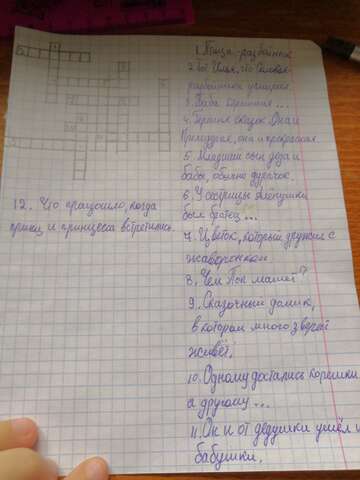 1. Птица-разбойник
разбойника укараулил
3. Баба костяная...
4. Героиня сказок. Она и
Премудрая, она и прекрасная.
5. Младший сын деда и
бабы, обычно дурачок.
6. У сестрицы Алёнушки
был братец...
7. Цветок, который дружил с
жаворонком
8. Чем Поп
9. Сказочный домик,
в котором много зверей
живёт.
10. Одному достались корешки
а другому...
11. Он и от дедушки ушёл и
бабушки.
12. Что произошло, когда
принц и принцесса встретились.